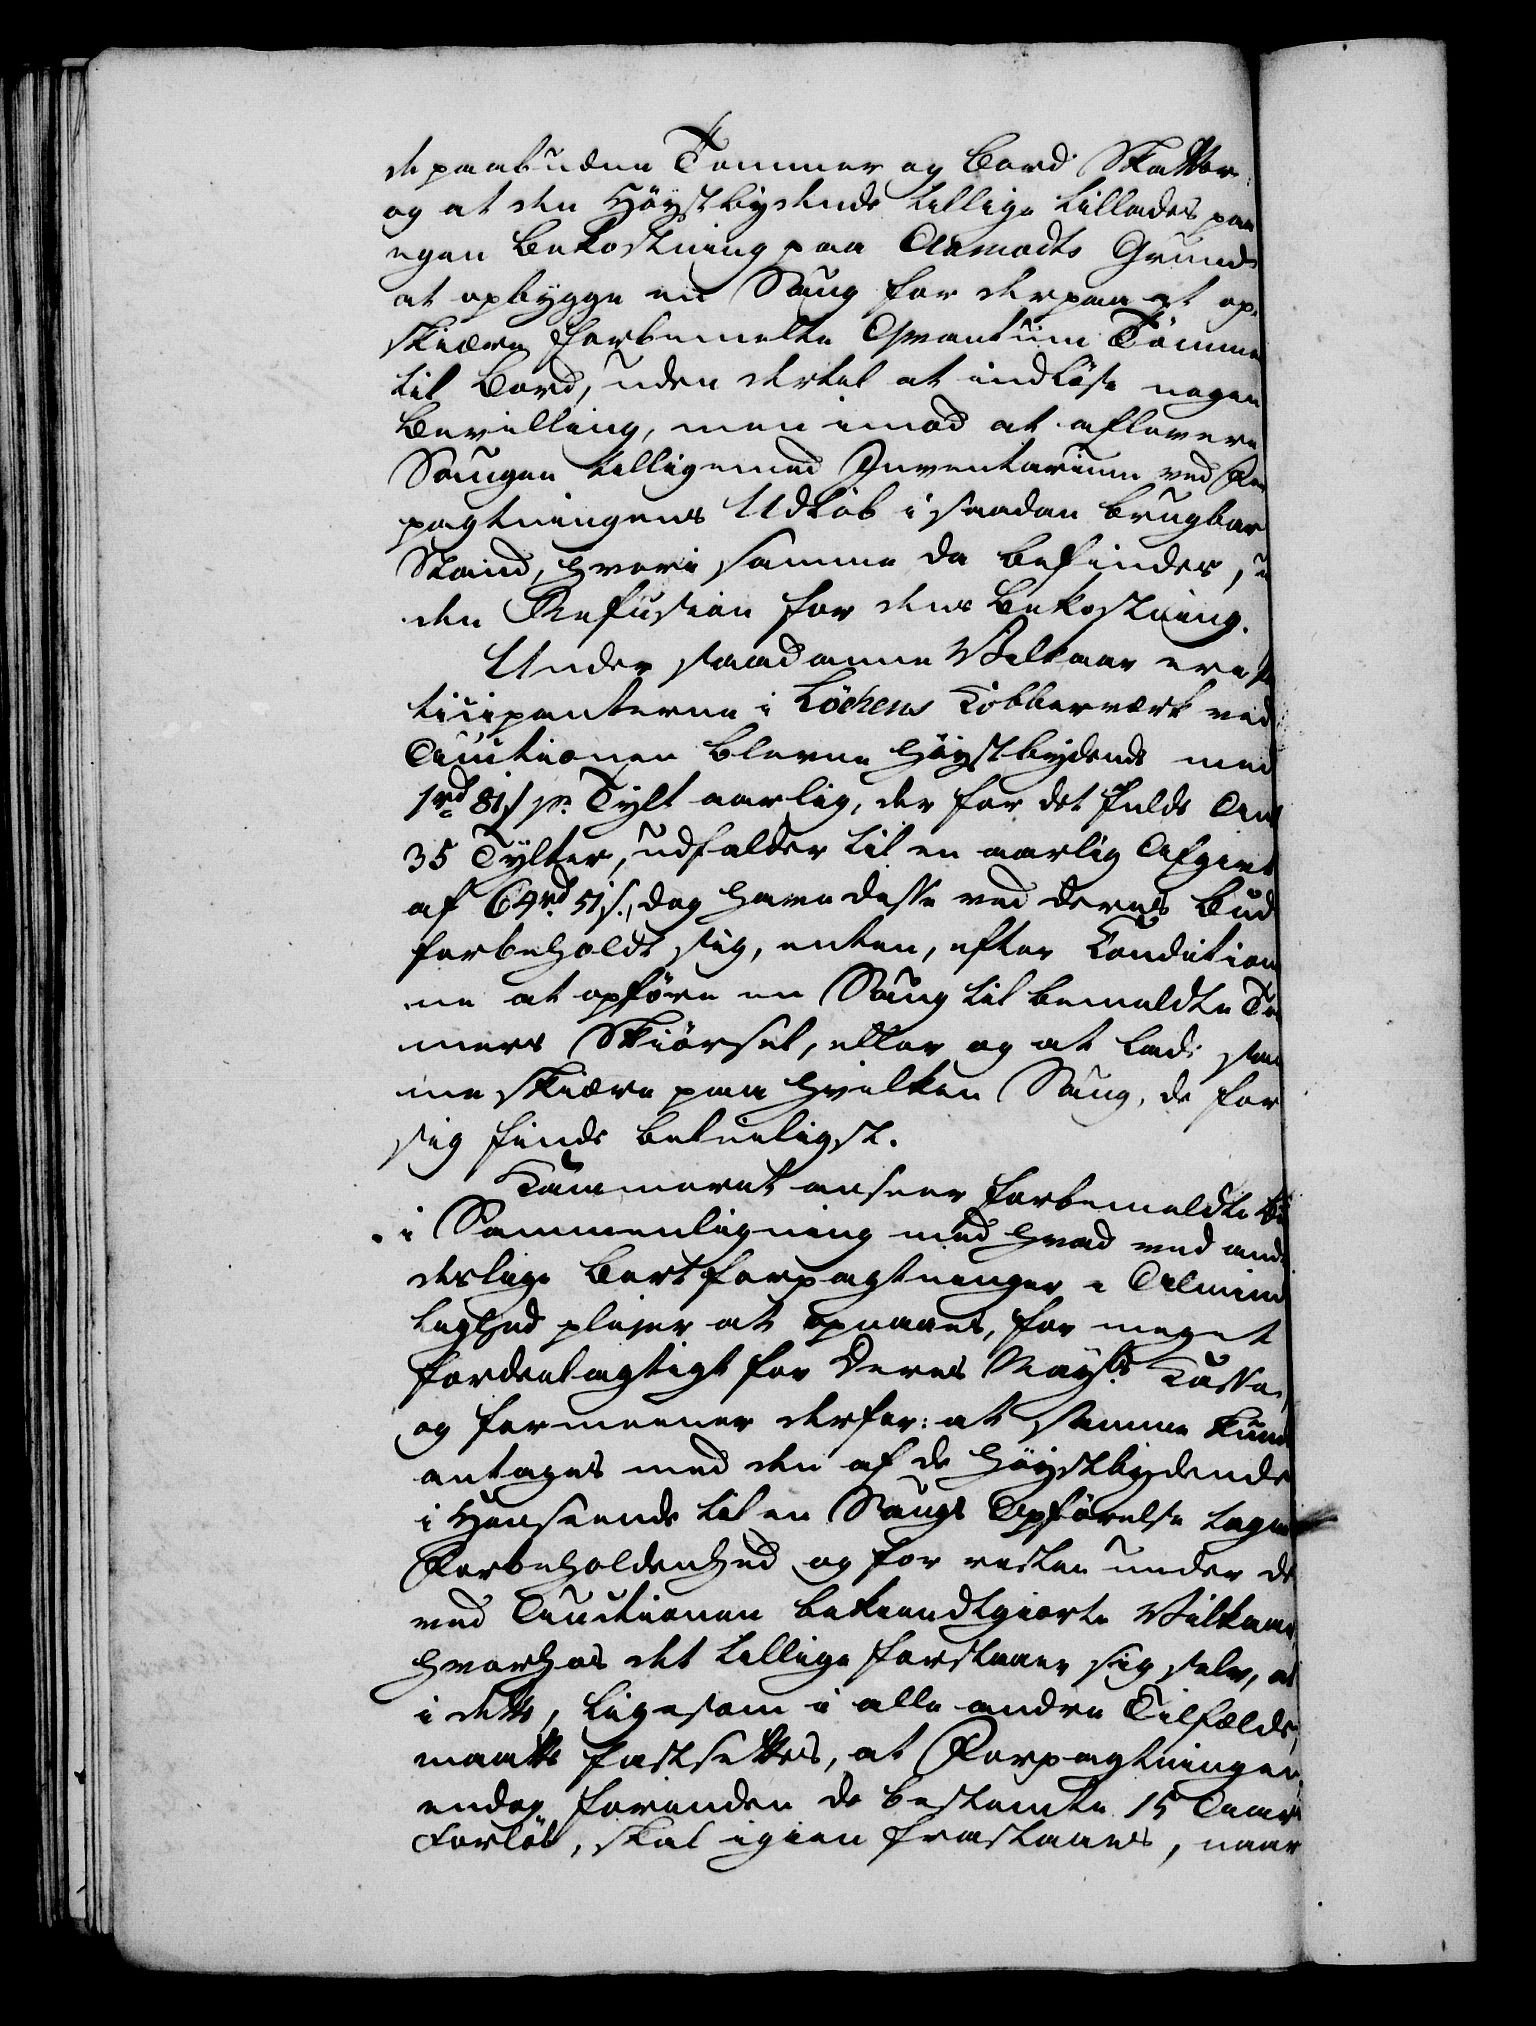 de paabudne Tømmer og Bord Skatter:
og at den Høystbydende tillige tillades paa
egen Bekostning paa Aamodts Grund
at opbygge en Saug for derpaa at op-
skiære forbemelte Qvantum Tømmer
til Bord, uden dertil at indløse nogen
Bevilling, men imod at aflevere
Saugen tilligemed Inventarium ved For
pagtningens Udløb i saadan brugbar
Stand, hvori samme da befindes, u
den Refusion for dens Bekostning.
Under saadanne Vilkaar ere Par
ticipanterne i Løchens Kobberverk ved
Auctionen blevne høystbydende med
1rd 81s pr. Tylt aarlig, der for det fulde Ant
35 Tylter, udfalder til en aarlig Afgivt
af 64rd 51s., dog have disse ved deres Bud
forbeholdt sig, enten, efter Condition
ne at opføre en Saug til bemeldte Tøm
mers Skiørsel, eller og at lade sam
me skiære paa hvilken Saug, de for
sig finde beleiligst.
Kammeret anseer forbemeldte Bud
i Sammenligning med hvad ved andre
deslige Bortforpagtninger i Almind
lighed plejer at opnaaes, for meget
fordeelagtigt for Deres Mayts Kasse,
og formeener derfor: at samme kunde
antages med den af de høystbydende
i Henseende til en Saugs Opførelse tagne
Forbeholdenhed og for resten under de
ved Auctionen bekiendtgiorte Vilkaar,
hvorhos det tillige forstaaer sig selv, at
i dette, ligesom i alle andre Tilfælde,
maatte fastsettes, at Forpagtningen,
endog forinden de bestemte 15 Aars
Forløb, skal igien frastaaes, naar